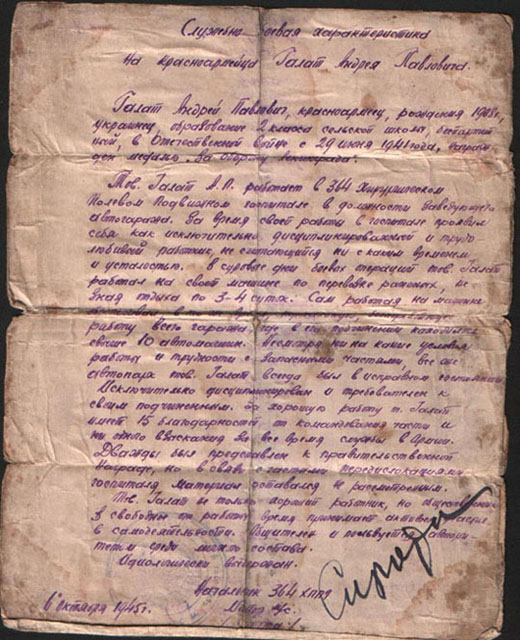 Служебно боевая характеристика
на красноармейца Галат Андрея Павловича.
Галат Андрей Павлович, красноармеец, рождения 1908г,
украинец, образование 2 класса сельской школы, беспартий-
ный, в Отечественной войне с 29 июня 1941 года, награж-
ден медалью "За оборону Ленинграда".
Тов. Галат А.П. работает в 364 Хирургическом
Полевом Подвижном госпитале в должности Заведующего
автогаража. За время своей работы в госпитале проявил
себя как исключительно дисциплинированный и трудо-
любивый работник, не считающийся ни с каким временем
и усталостью. В суровые дни боевых операций тов. Галат
работал на своей машине по перевозке раненых, не
зная отдыха по 3-4 суток. Сам работая на машине
работу всего гаража, где в его подчинении находилось
свыше 10 автомашин. Несмотря ни на какие условия
работы и трудности с запасными частями, все же
автопарк тов. Галат всегда был в исправном состоянии
Исключительно дисциплинирован и требователен к
своим подчиненным. За хорошую работу т. Галат
имеет 15 благодарностей от командования части и
ни одного взыскания за все время службы в Армии.
Дважды был представлен к правительственной
награде, но в связи с частыми передислокациями
госпиталя материал оставался не рассмотренным.
Тов. Галат не только хороший работник, но общественник
в свободное от работы время принимает активное участие
в самодеятельности. Общителен и пользуется автори-
тетом среди личного состава.
Идеологически выдержан.
Начальник 364 хппг
6 октября 1945г. Майор м/с